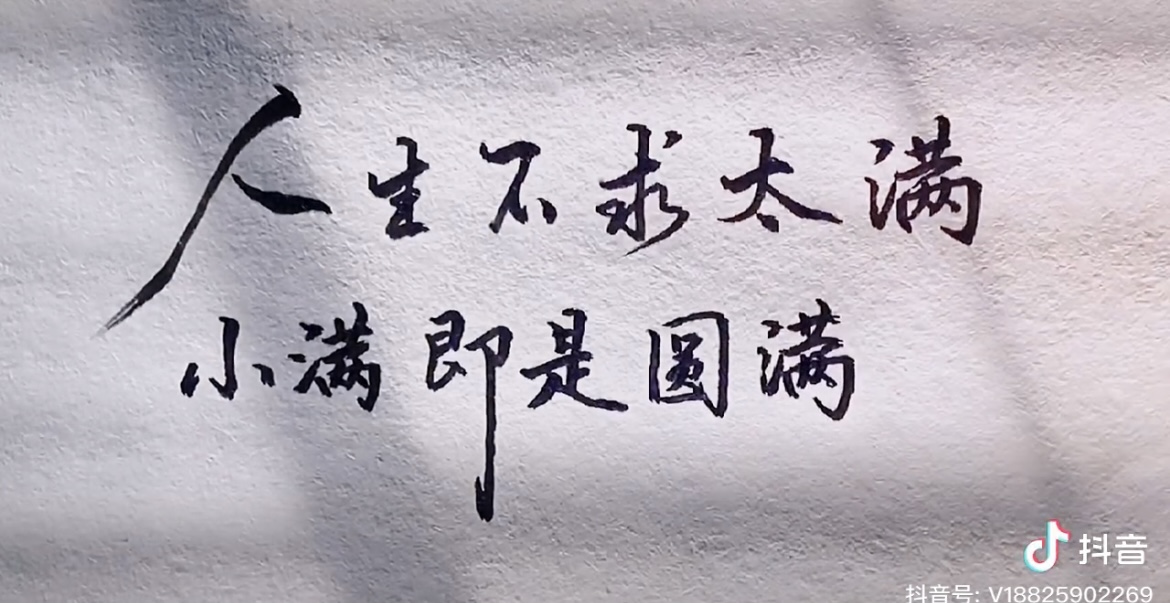 人生不求太满
小满即是圆满
抖音
抖音号: V18825902269